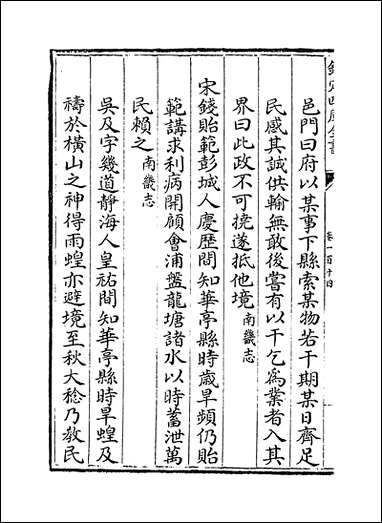 欽定四庫全書
卷一百十四
邑門曰府以某事下縣索某物若干期某日齊足
民感其誠供輸無敢後嘗有以干乞爲業者入其
界曰此政不可撓遂抵他境南畿志
宋錢貽範彭城人慶歷間知華亭縣時歲旱頻仍貽
範講求利病開顧會浦盤龍塘諸水以時蓄泄萬
民賴之南畿志
吳及字幾道靜海人皇祐間知華亭縣時旱蝗及
禱於橫山之神得雨蝗亦避境至秋大稔乃教民